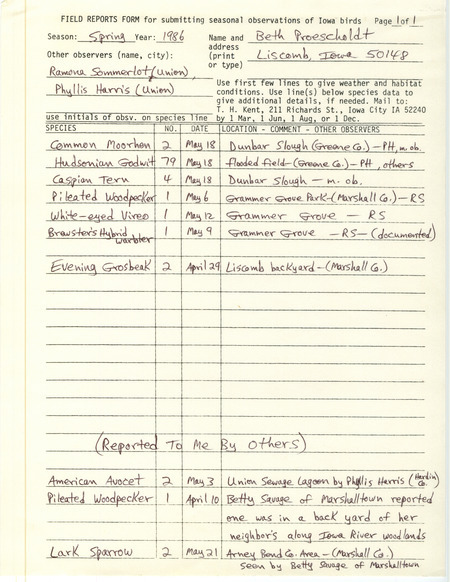 FIELD REPORTS FORM for submitting seasonal observations of Iowa birds Page 1 of 1
Season: Spring Year: 1986 Name and Beth Proescholdt
address
Other observers (name, city): (print Liscomb, Iowa 50148
or type)
Ramona Sommerlot (Union),
Phyllis Harris (Union)
Use first few lines to give weather and habitat
conditions. Use line(s) below species data to
give additional details, if needed. Mail to:
T. H. Kent, 211 Richards St., Iowa City IA 52240
use initials of obsv. on species line by 1 Mar, 1 Jun, 1 Aug, or 1 Dec.
SPECIES NO. DATE LOCATION - COMMENT - OTHER OBSERVERS
Common Moorhen 2 May 18 Dunbar Slough (Greene Co.) - PH, m. ob.
Hudsonian Godwit 79 May 18 Flooded field - (Greene Co.) - PH, others
Caspian Tern 4 May 18 Dunbar Slough - m. ob.
Pileated Woodpecker 1 May 6 Grammer Grove Park - (Marshall Co.) - RS
White-eyed Vireo 1 May 12 Grammer Grove - RS
Brewster's Hybrid Warbler 1 May 9 Grammer Grove - RS - (documented)
Evening Grosbeak 2 April 29 Liscomb backyard - (Marshall Co.)
(Reported To Me By Others)
American Avocet 2 May 3 Union Sewage Lagoon by Phyllis Harris (Hardin Co.)
Pileated Woodpecker 1 April 10 Betty Savage of Marshalltown reported
one was in a back yard of her
neighbor's along Iowa River woodlands
Lark Sparrow 2 May 21 Arney Bend Co. Area - (Marshall Co.)
seen by Betty Savage of Marshalltown